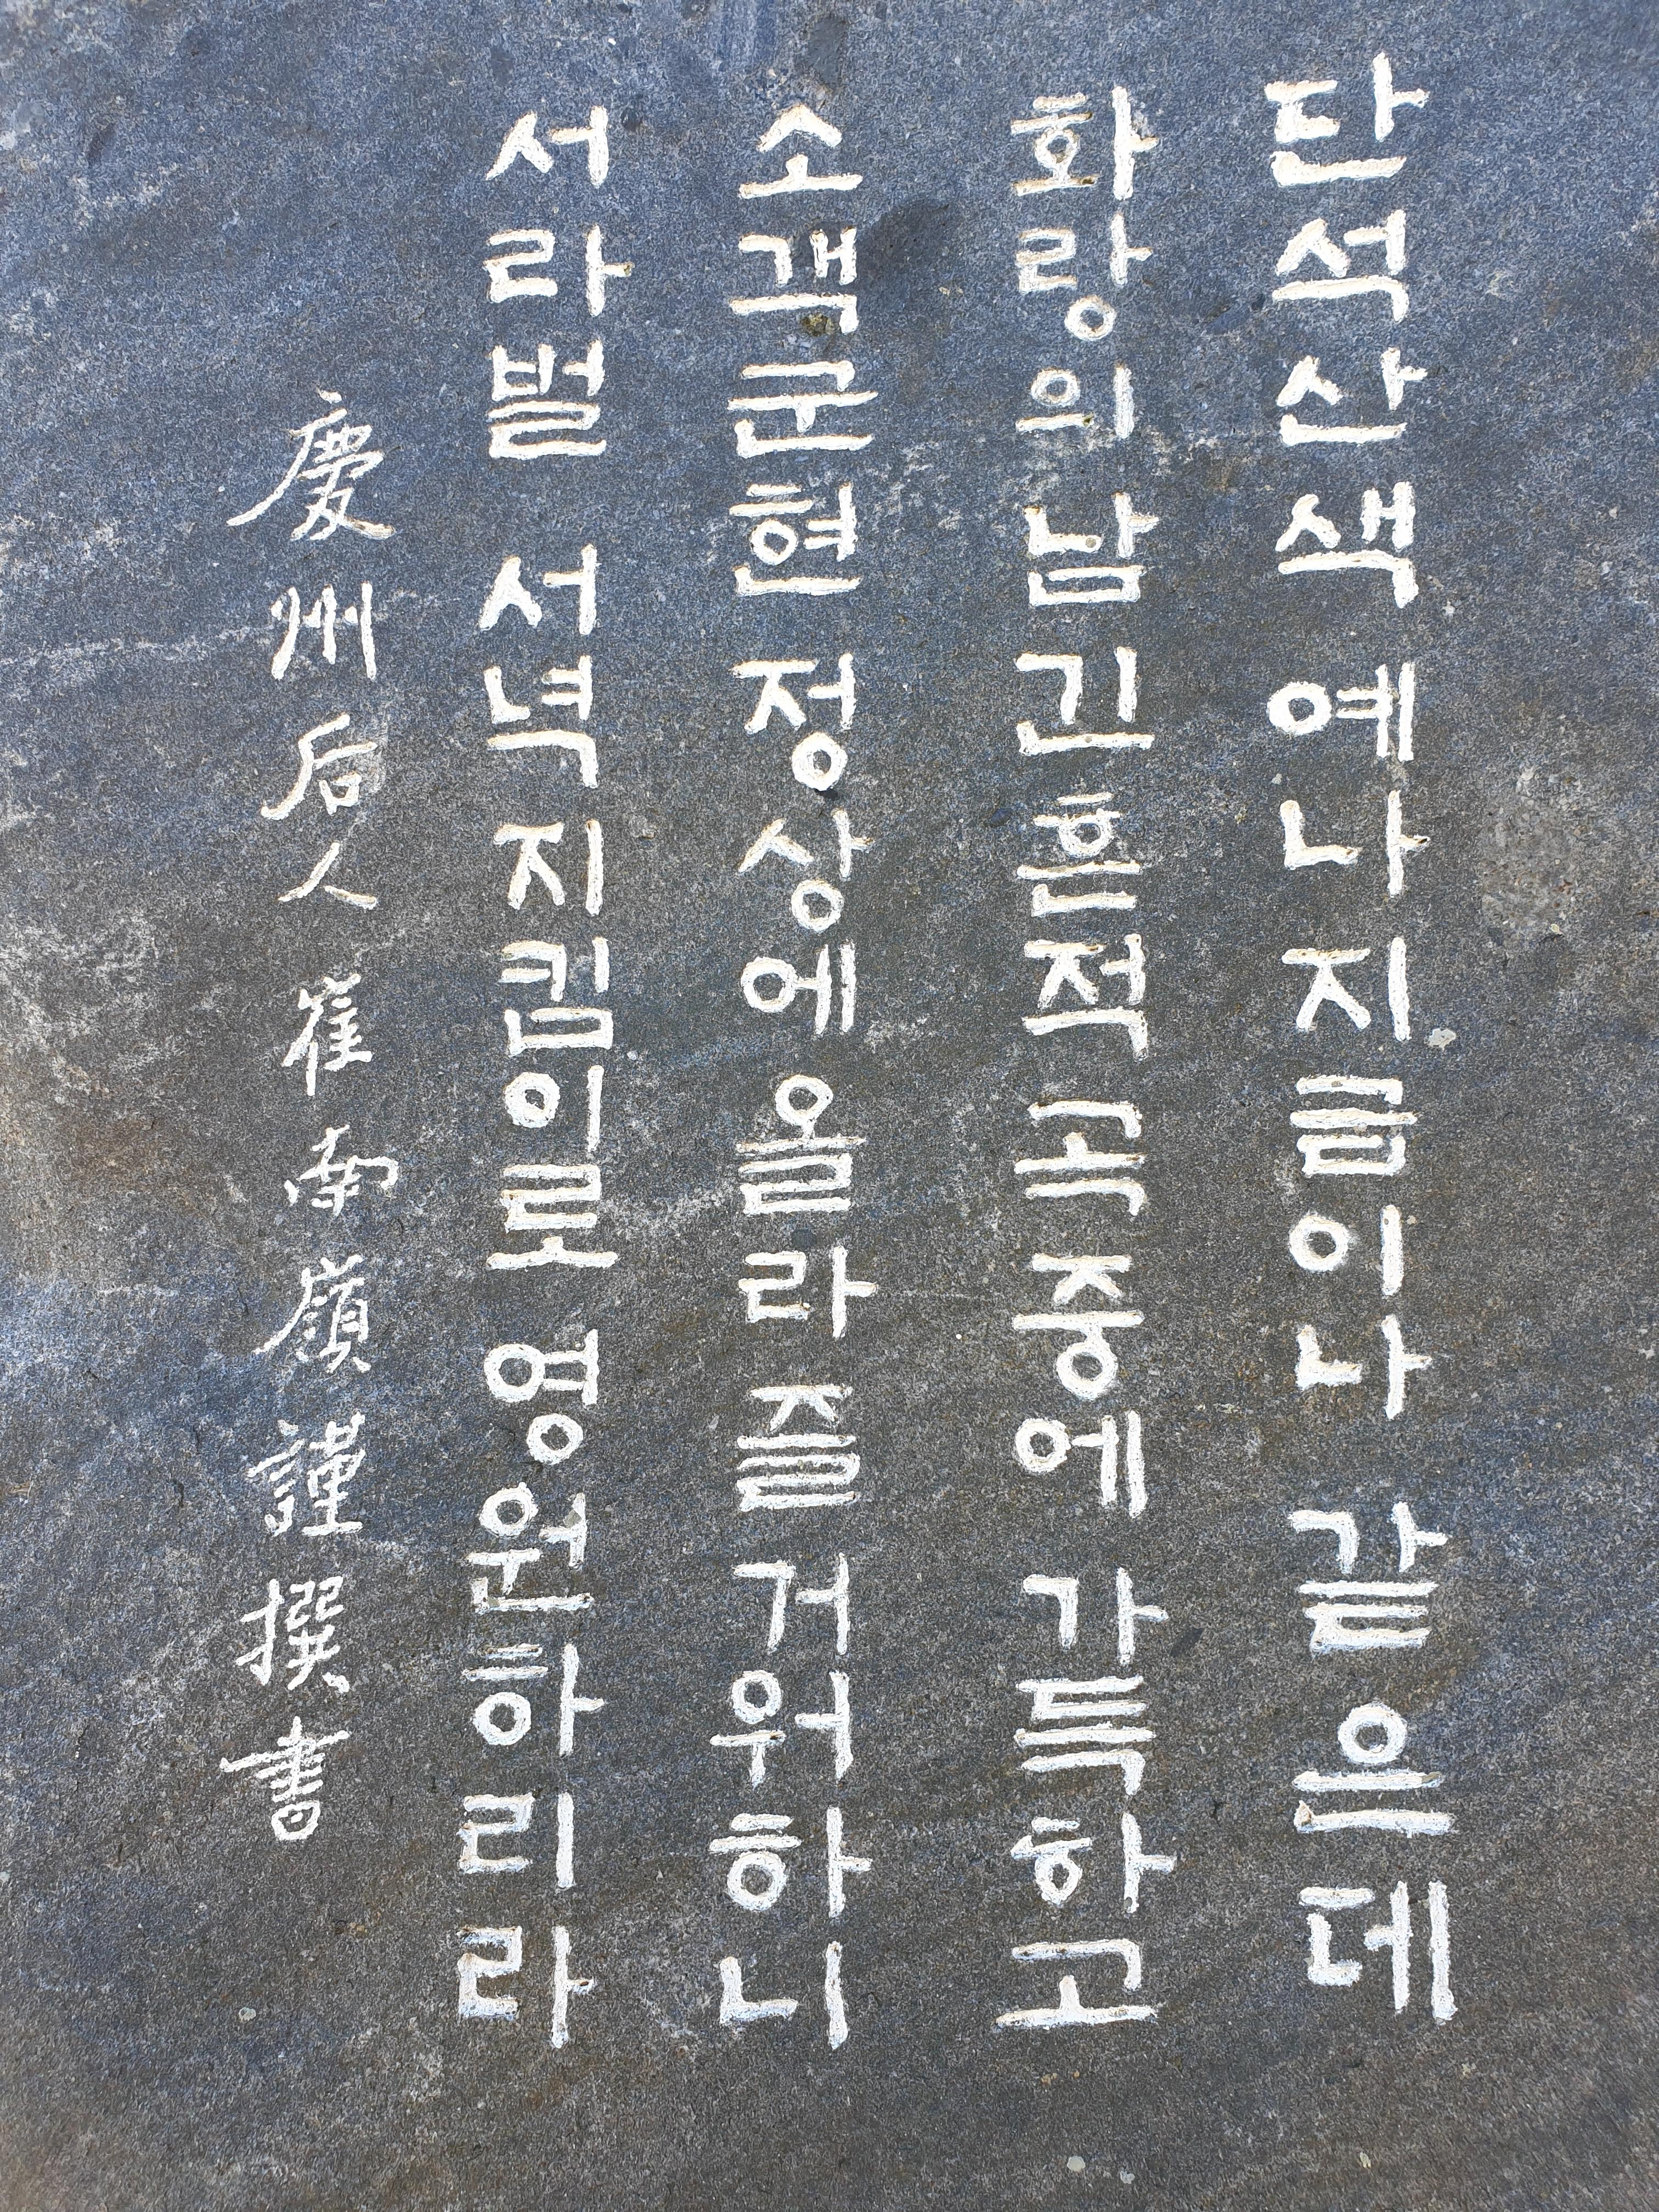 단석산색 예나 지금이나 같으데
화랑의 남긴 흔적 곡중에 가득하고
소객군현 정상에 올라 즐거워하니
서라벌 서녘 지킴이로 영원하리라
慶州后人 崔南嶺 謹撰書